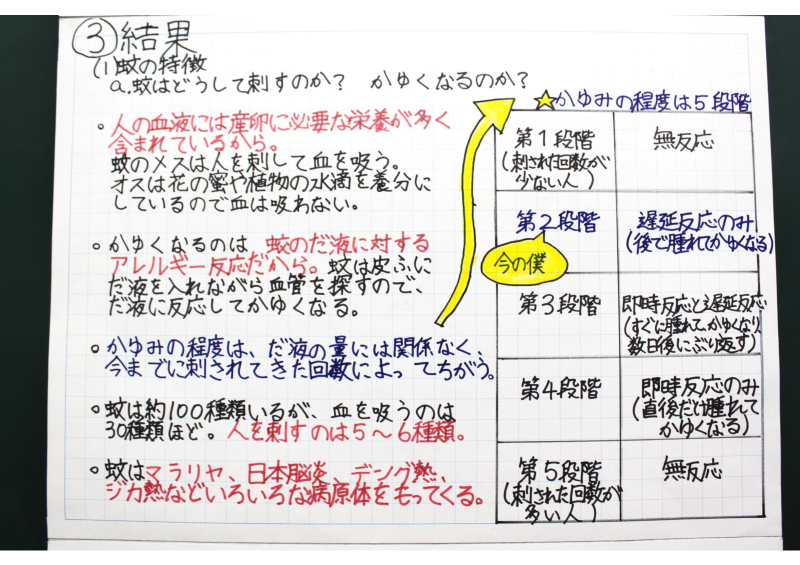 ③結果
(1)蚊の特徴
a.蚊はどうして刺すのか？ かゆくなるのか？
。人の血液には産卵に必要な栄養が多く
含まれているから。
蚊のメスは人を刺して血を吸う。
オスは花の蜜や植物の水滴を養分に
しているので血は吸わない。
。かゆくなるのは、蚊のだ液に対する
アレルギー反応だから。蚊は皮ふに
だ液を入れながら血管を探すので、
だ液に反応してかゆくなる。
。かゆみの程度は、だ液の量には関係なく、
今までに刺されてきた回数によってちがう。
。蚊は約100種類いるが、血を吸うのは
30種類ほど。人を刺すのは5〜6種類。
。蚊はマラリヤ、日本脳炎、デング熱、
ジカ熱などいろいろな病原体をもってくる。
☆かゆみの程度は5段階
第1段階
(刺された回数が
少ない人)
無反応
第2段階
遅延反応のみ
(後で腫れてかゆくなる)
今の僕
第3段階
即時反応と遅延反応
(すぐに腫れてかゆくなり
数日後にぶり返す)
第4段階
即時反応のみ
(直後だけ腫れて
かゆくなる)
第5段階
(刺された回数が
多い人)
無反応